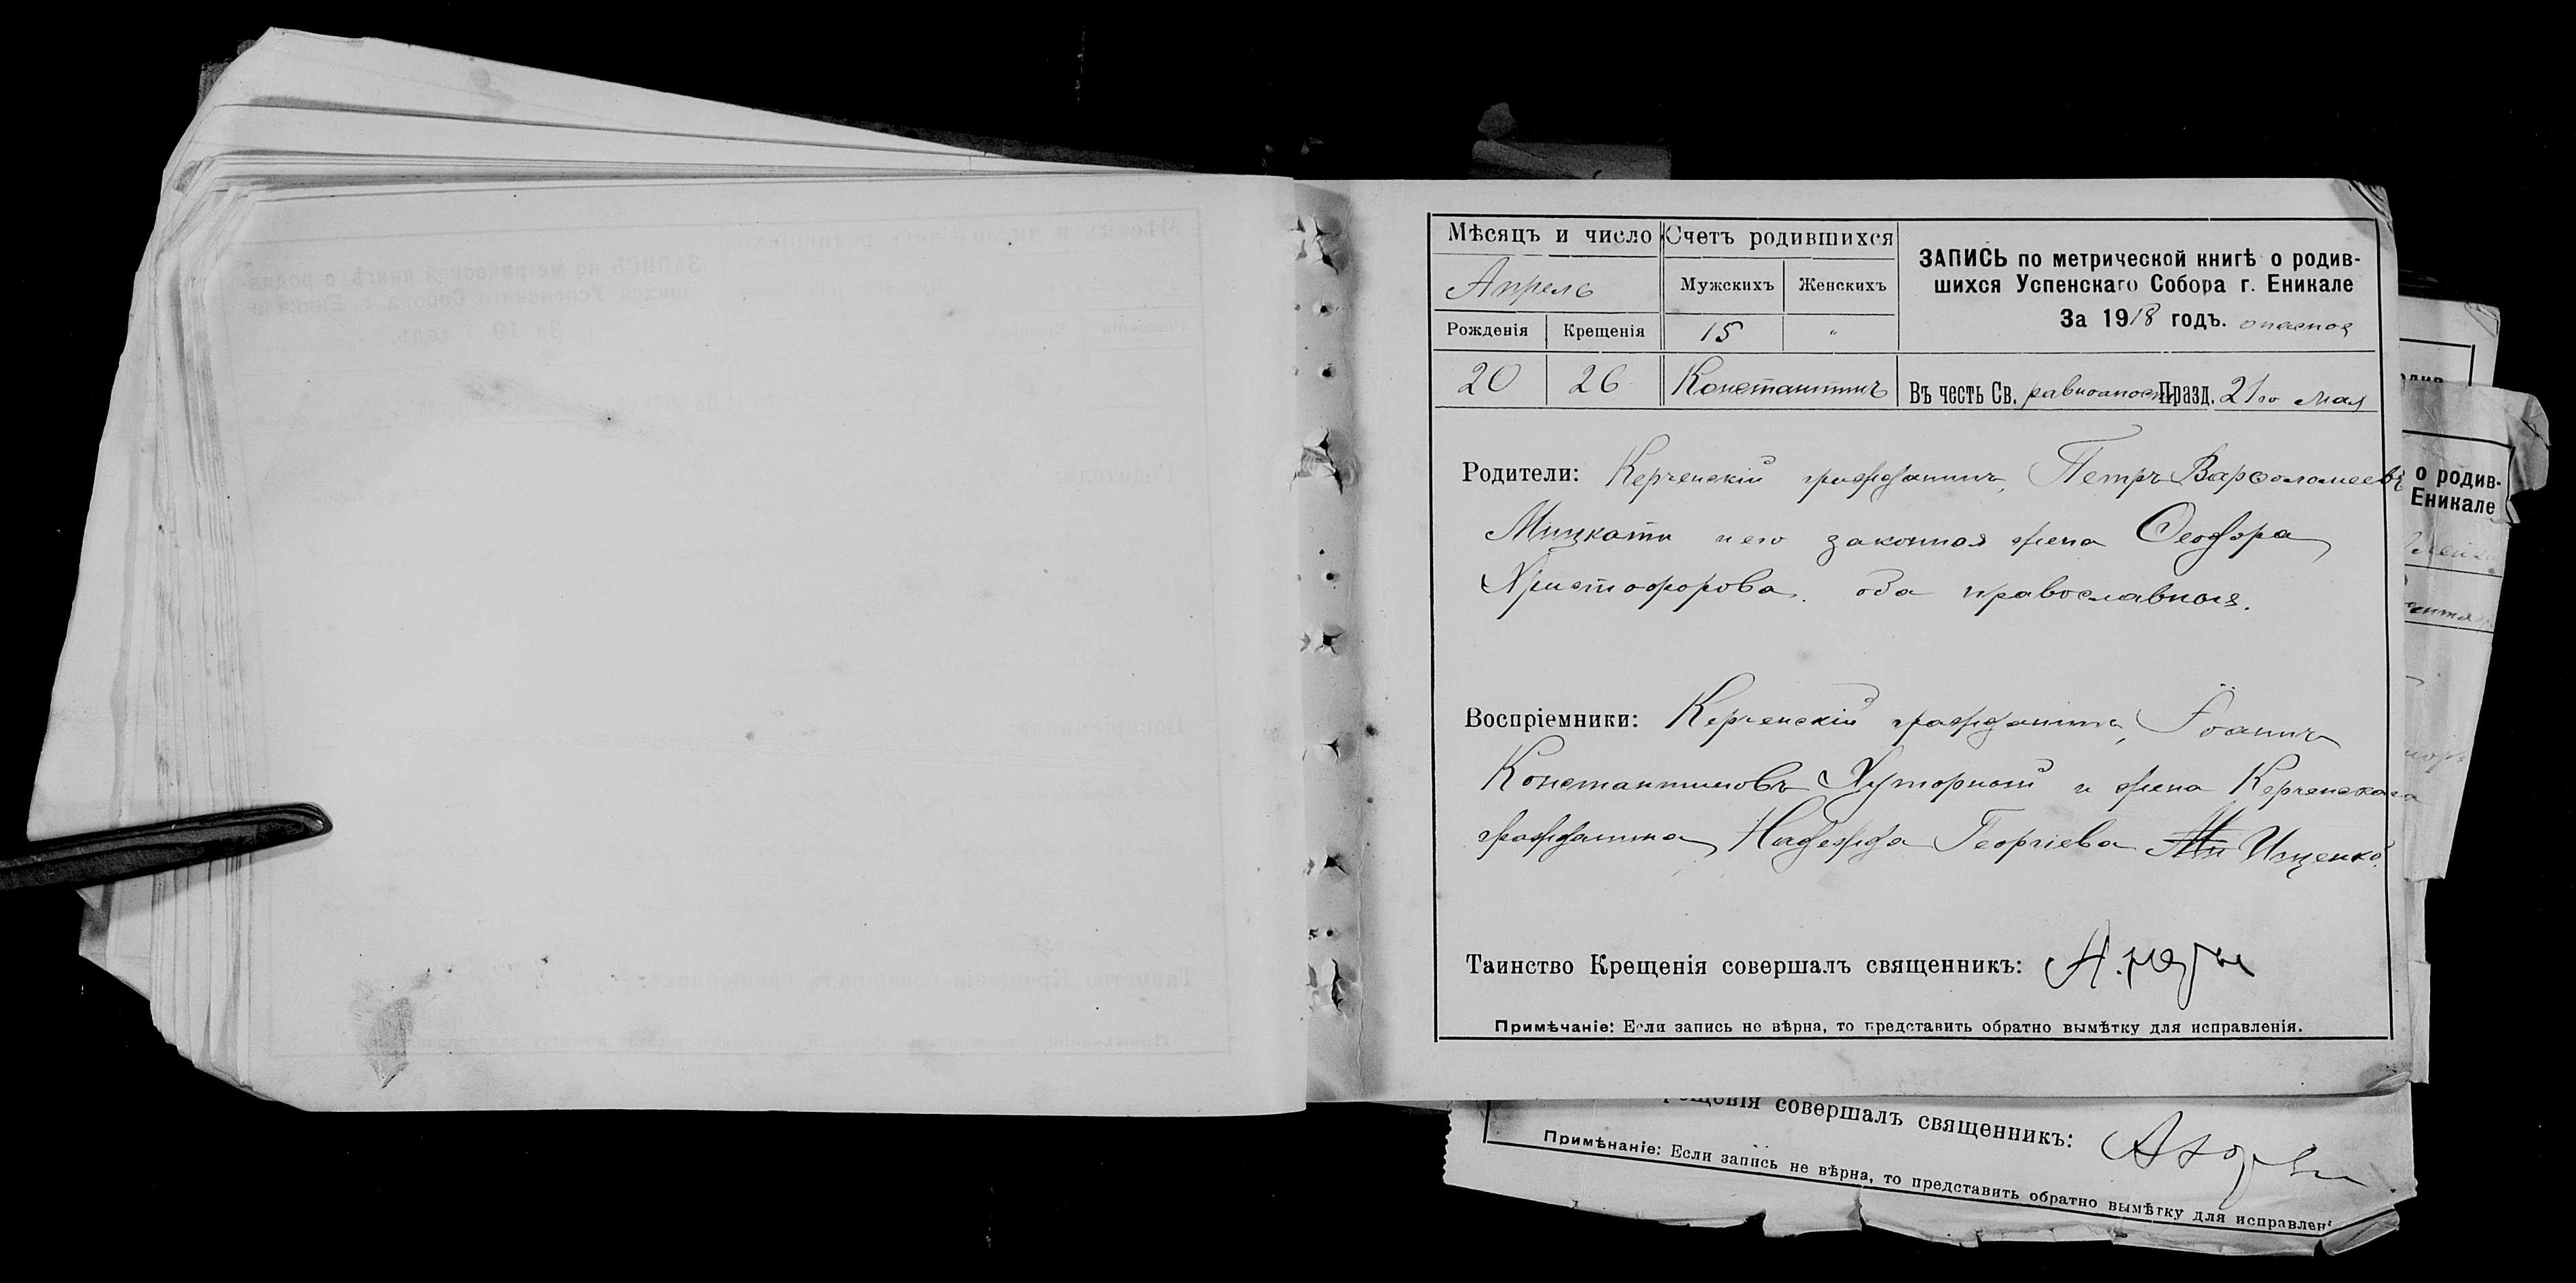 Мѣсяцъ и число
Счетъ родившихся
ЗАПИСЬ по метрической книгѣ о родив-
шихся Успенскаго Собора г. Еникале
За 1918 годъ.
Апрель
Мужскихъ
Женскихъ
Рожденія
Крещенія
15
"
20
26
Константинъ
Въ честь Св. равноапост. Празд. 21го мая
Родители: Керченскій гражданинъ, Петръ Варѳоломеевъ
Мицкати и его законная жена Ѳеодора
Христофорова. оба православные.
Воспріемники: Керченскій гражданинъ, Іоаннъ
Константиновъ Хуторной и жена Керченскаго
гражданина, Надежда Георгіева Ищенко.
Таинство Крещенія совершалъ священникъ:
Примѣчаніе: Если запись не вѣрна, то представить обратно вымѣтку для исправленія.
о родив-
Еникале
совершалъ священникъ:
Примѣнаніе: Если запись не вѣрна, то представить обратно вымѣтку для исправлен